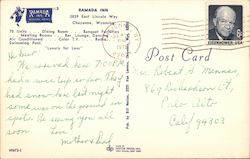 RAMADA INN
3839 East Lincoln Way
Cheyenne, Wyoming
70 Units Dining Room Banquet Facilities
Meeting Rooms Bar, Lounge, Dancing
Conditioned Color T.V.
Swimming Pool
"Luxury for Less"
Post Card
EISENHOWER·USA
We arrived here 7:00 P.M.
had a nice trip so far. They
had snow here last night
some was on the ground in
spots. Be seeing you all
soon. Love
Mother & Dad
Robert
Richardson Ct.
Palo Alto
Calif 94303